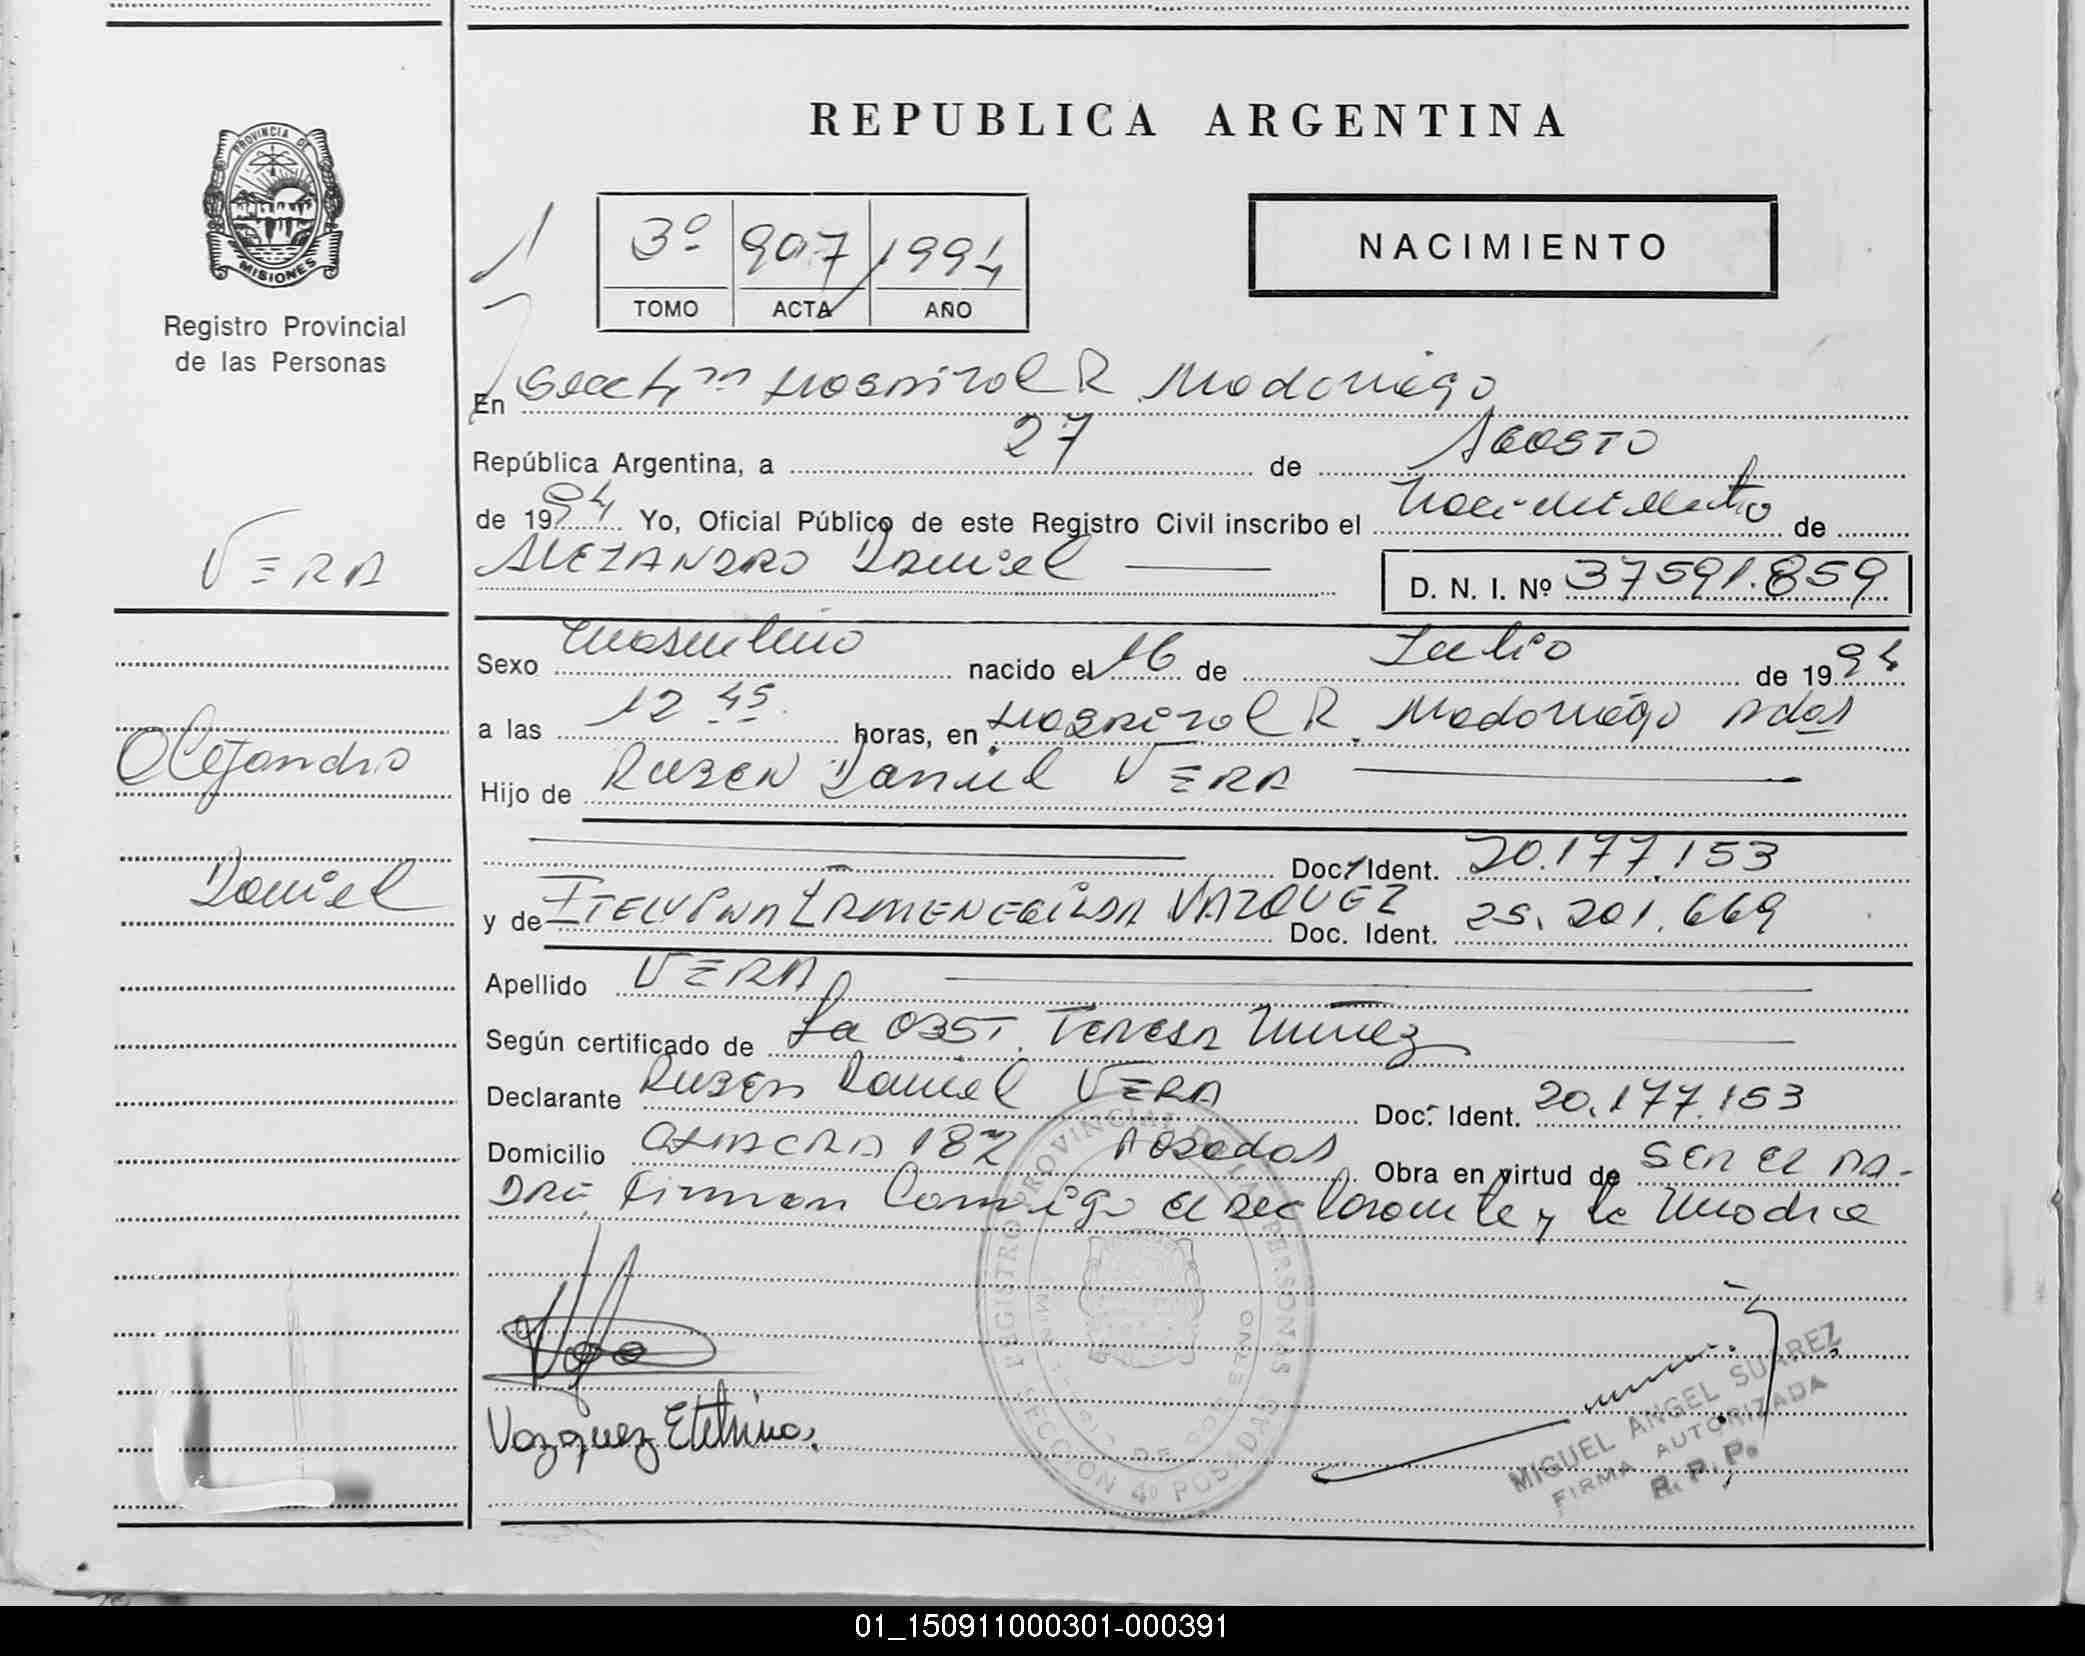 REPUBLICA ARGENTINA
PROVINCIA DE
MISIONES
Registro Provincial
de las Personas
3º 907 1994
TOMO ACTA AÑO
NACIMIENTO
En Secc 4ta Hospital R Madariaga
República Argentina, a 27 de Agosto
de 1994 Yo, Oficial Público de este Registro Civil inscribo el Nacimiento de
ALEJANDRO Daniel
D. N. I. Nº 37591.859
VERA
Alejandro
Daniel
Sexo Masculino nacido el 16 de Julio de 1994
a las 12 45 horas, en Hospital R. Madariaga Pdas
Hijo de RUBEN Daniel VERA
Doc. Ident. 20.177.153
y de ERMENEGILDA VAZQUEZ Doc. Ident. 25.201.669
Apellido VERA
Según certificado de La OBST. TERESA Nuñez
Declarante RUBEN Daniel VERA Doc. Ident. 20.177.153
Domicilio 182 Posadas Obra en virtud de SER EL PA-
DRE, Firman Conmigo el Declarante y la Madre
Vazquez
REGISTRO PROVINCIAL DE LAS PERSONAS
SECCION 4º POSADAS
MINISTERIO DE GOBIERNO
MIGUEL ANGEL SUAREZ
FIRMA AUTORIZADA
R. P. P.
01_150911000301-000391